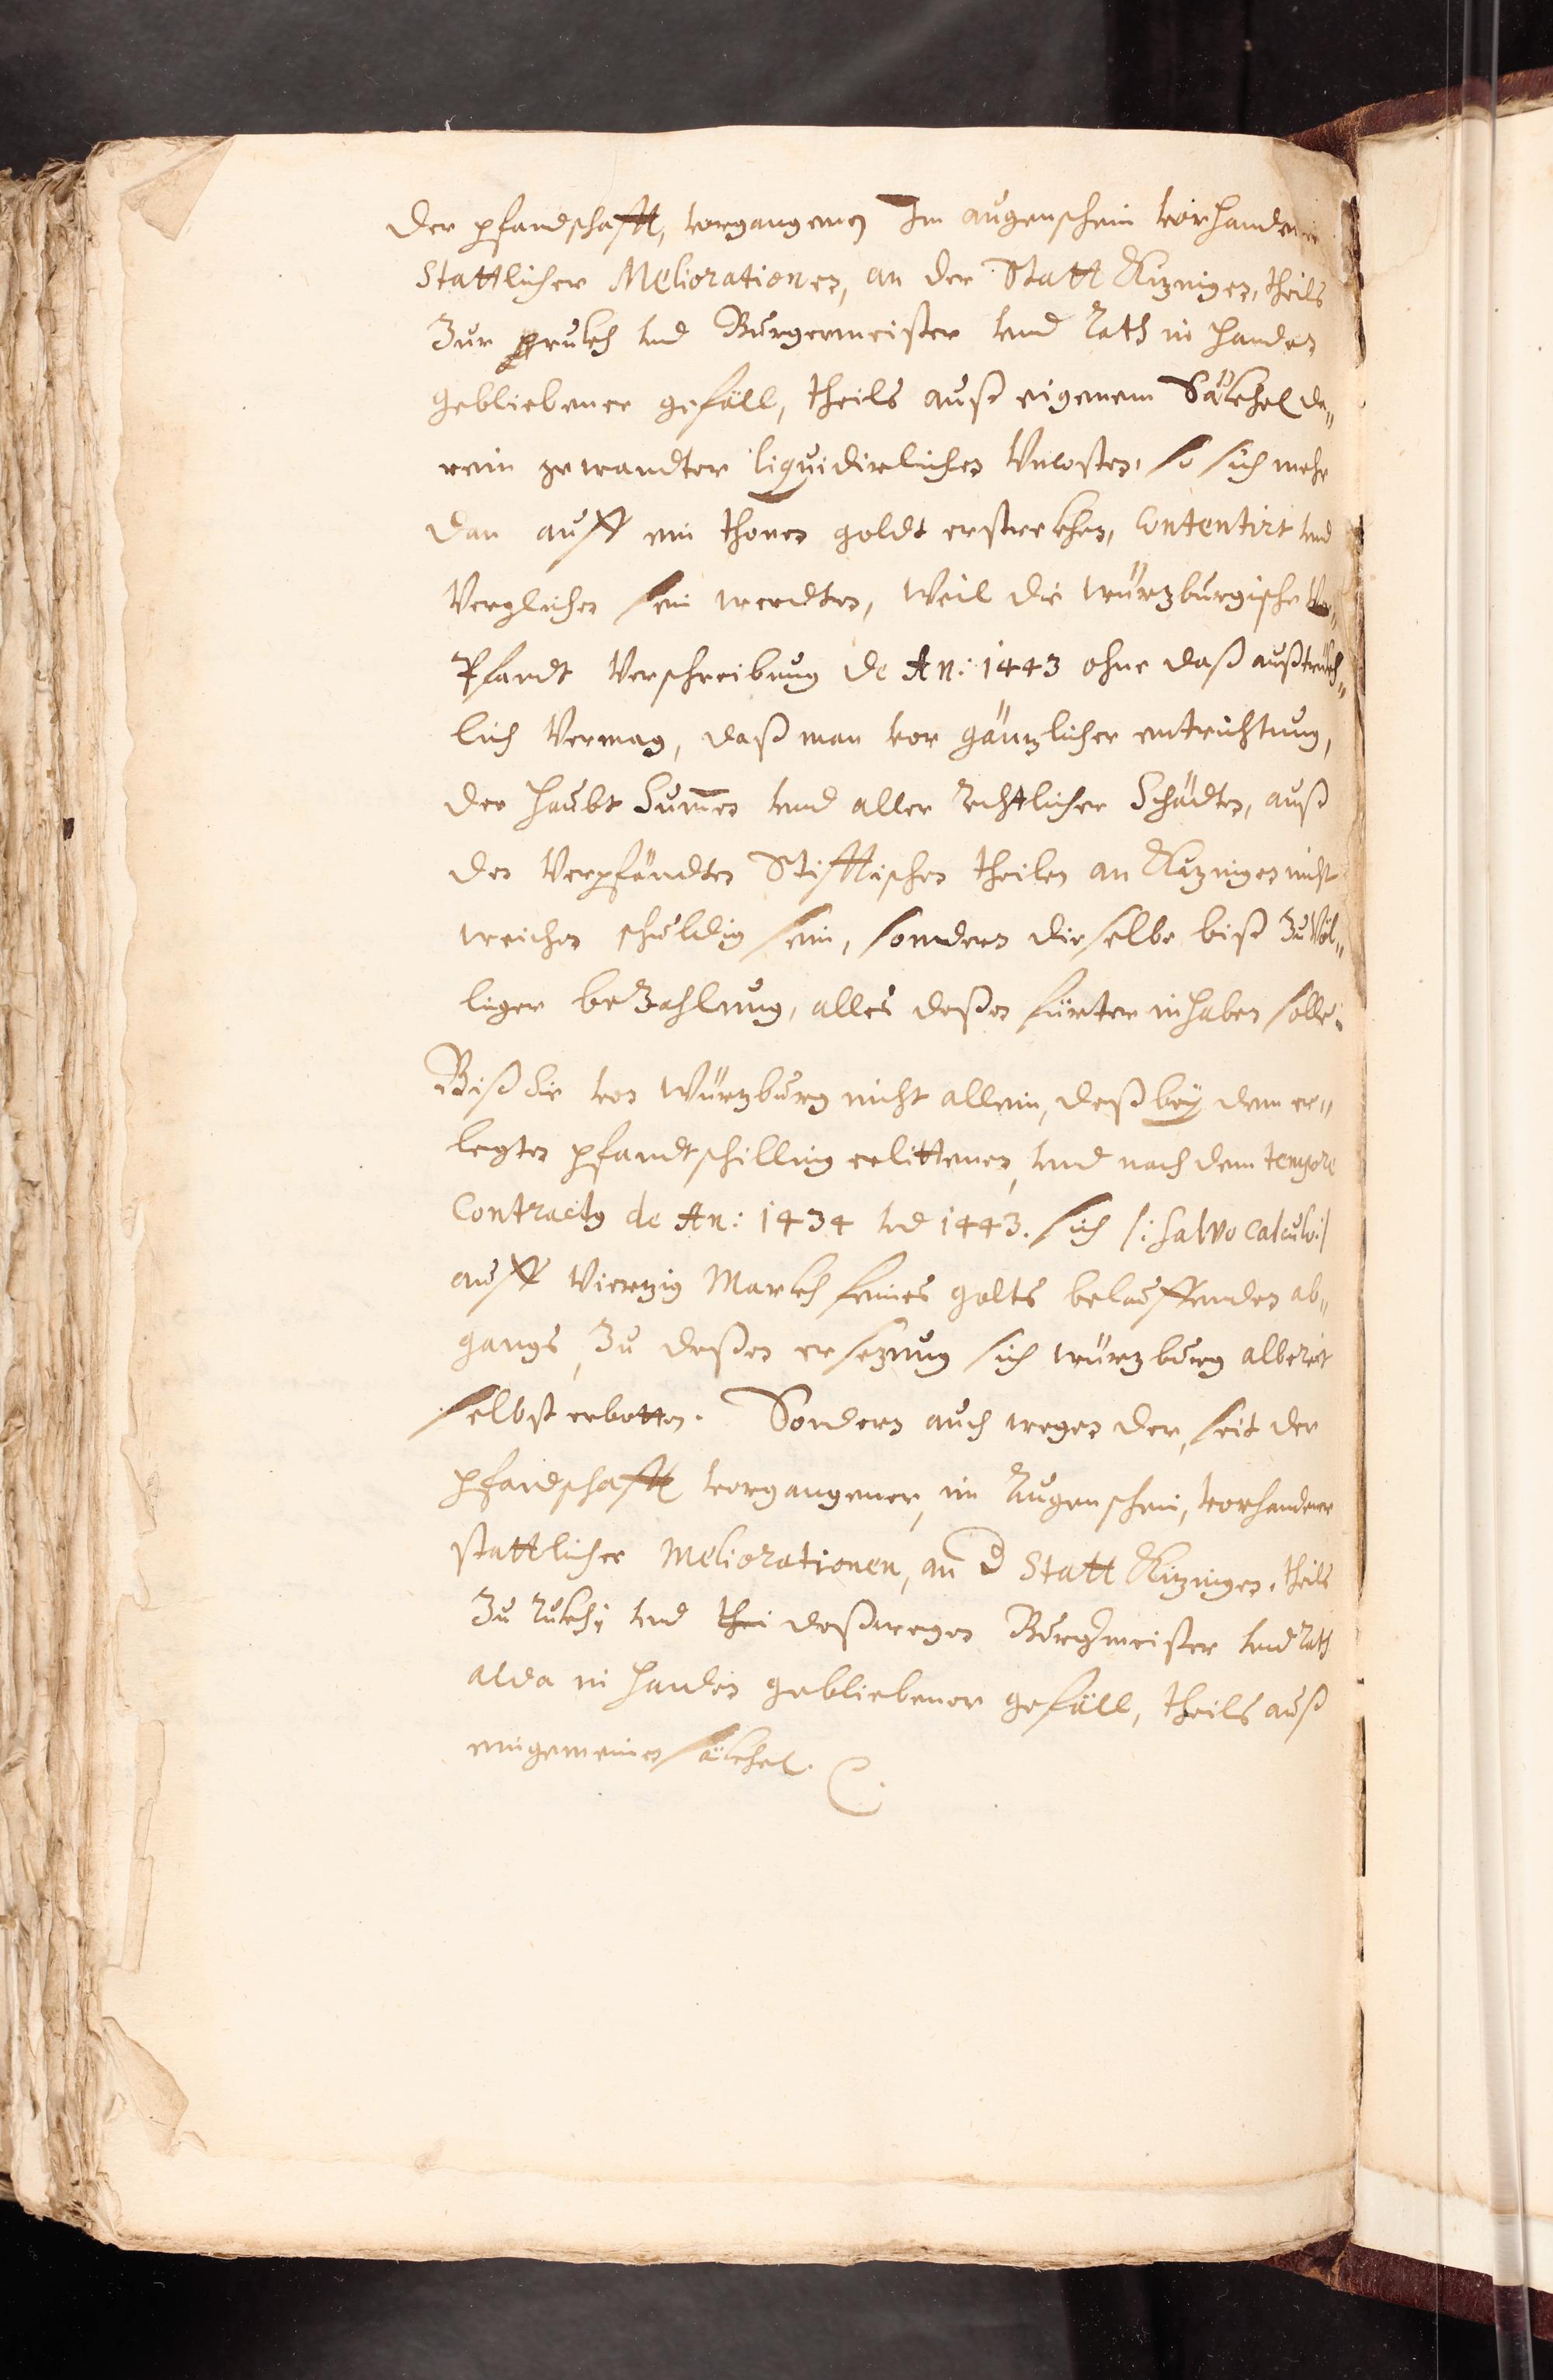 der pfandschafft, vorgangener Im augenschein vorhandener
Stattlicher Meliorationen, an der Statt Kitzingen, theils
Zur prukh vnd Burgermeister vnd Rath in handen
gebliebener gefäll, theils auß eigenem Säkhel da„
rein gewandter liquidirlichen Vncosten, so sich mehr
dan auff ein thonen goldt erstrekhen, Contentirt vnd
Verglichen sein werdten, Weil die würtzburgische
Pfandt Verschreibung de An: 1443 ohne daß außtrükh„
lich Vermag, daß man vor gäntzlicher entrichtung,
der haubt Sum̄en vnd aller rechtlicher Schädten, auß
den Verpfändten Stifftischen theilen an Kitzingen nicht
weichen schuldig sein, sondern dieselbe biß Zu Völ„
liger beZahlung, alles deßen fürter inhaben solle.
Biß Sie von Würtzburg nicht allein, deß bey dem er„
legten pfandtschilling erlittenen, vnd nach dem tempore
Contractus de An: 1434 vnd 1443. sich /: salvo calculo:/
auff Viertzig Markh feines golts belauffenden ab„
gangs, Zu deßen ersezung sich würtzburg albereit
selbst erbotten. Sondern auch wegen der, seit der
pfandschafft vorgangener, im Augenschein, vorhandener
stattlicher Meliorationen, an d Statt Kitzingen, theils
Zu rukh vnd thei deßwegen Burgmeister vnd Rath
alda in handen gebliebener gefäll, theils auß
eingemeinen säkhel.